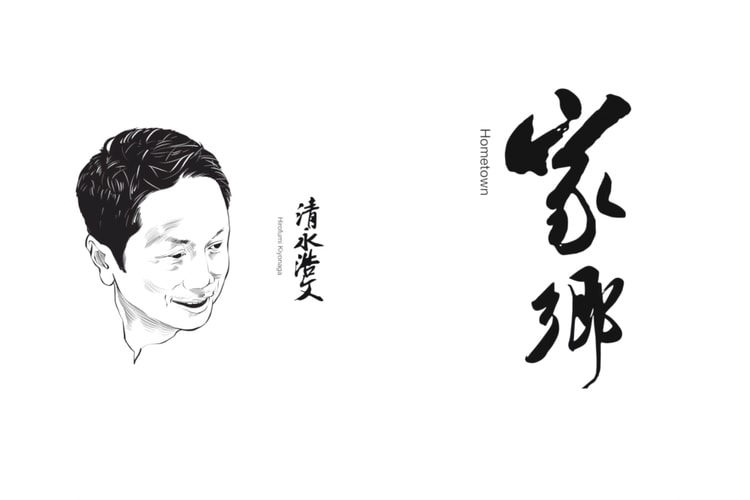 清永浩文
Hirofumi Kiyonaga
家鄉
Hometown